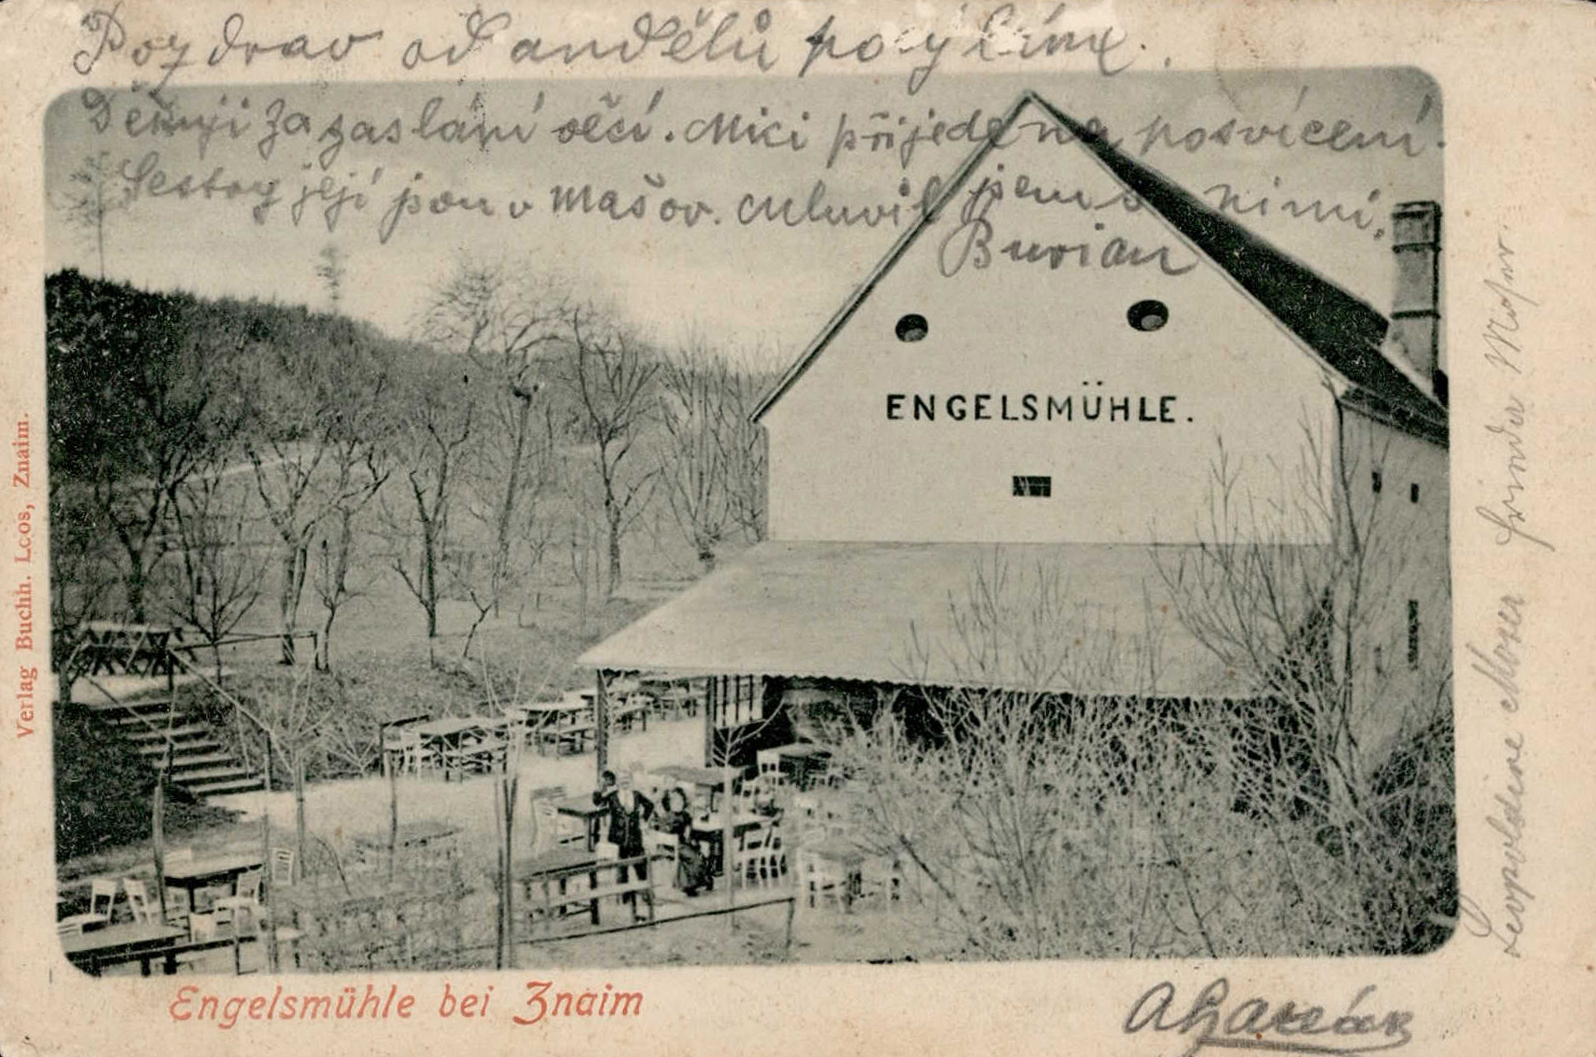 Pozdrav od andělů posýláme.
Děkuji za zaslání věcí. Mici přijede na posvícení.
Sestry její jsou v Mašov. Mluvil jsem s nimi.
Burian
ENGELSMÜHLE.
Verlag Buchh. Loos, Znaim.
Leopoldine Moser Moser
Engelsmühle bei Znaim